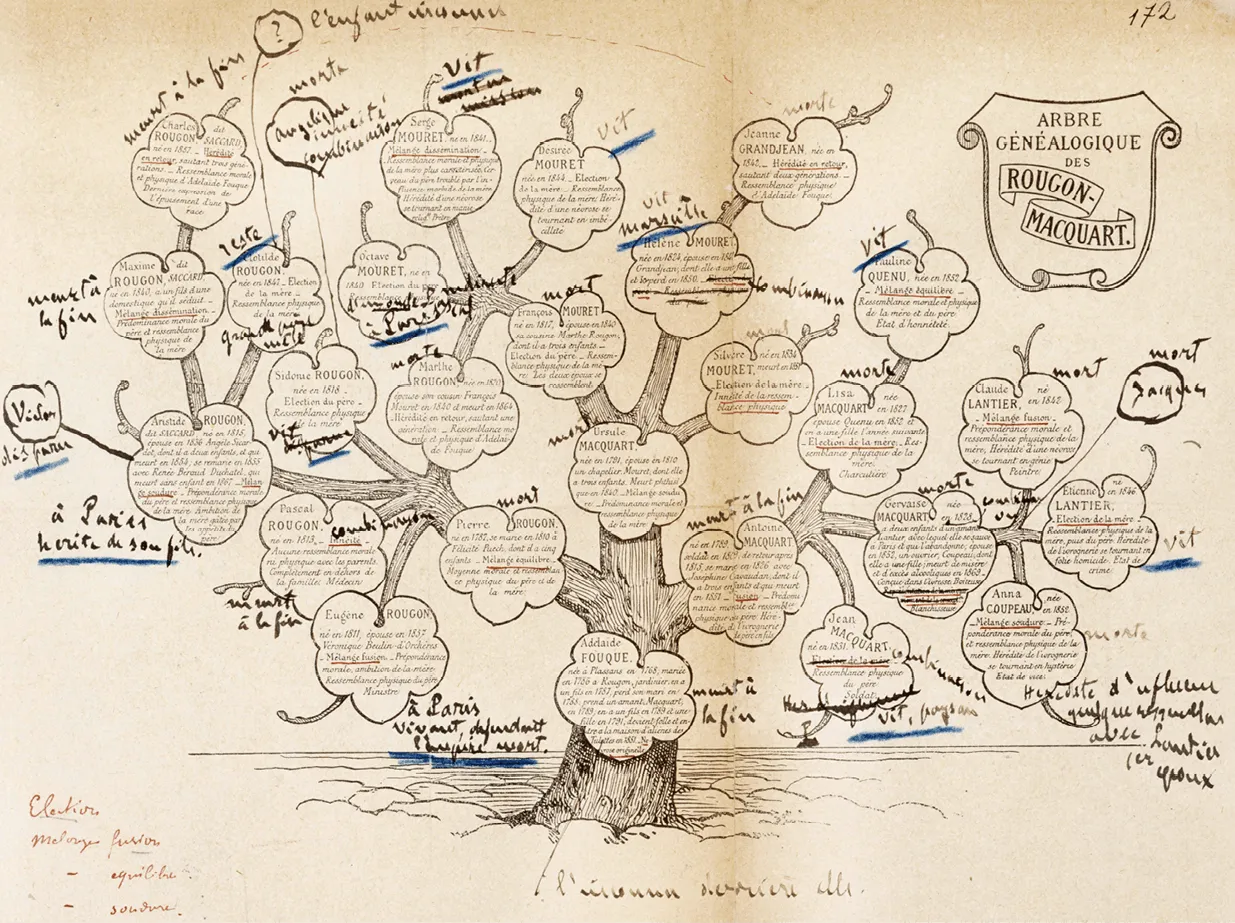 172
l'enfant inconnu
?
ARBRE
GÉNÉALOGIQUE
DES
ROUGON-
MACQUART.
meurt à la fin
Charles dit
ROUGON, SACCARD,
né en 1857. Hérédité
en retour, sautant trois géné-
rations. Ressemblance morale
et physique d'Adélaïde Fouque.
Dernière expression de
l'épuisement d'une
race
morte
Angélique
innéité
combinaison
Vit
Serge
MOURET, né en 1841.
Mélange dissémination.
Ressemblance morale et physique
de la mère plus caractérisée. Cer-
veau du père troublé par l'in-
fluence morbide de la mère
Hérédité d'une névrose
se tournant en manie
relig. Prêtre
vit
Désirée
MOURET
née en 1844. Election
de la mère. Ressemblance
physique de la mère. Héré-
dité d'une névrose se
tournant en imbé
cillité
morte
Jeanne
GRANDJEAN, née en
1842. Hérédité en retour,
sautant deux générations.
Ressemblance physique
d'Adélaïde Fouque.
meurt à
la fin
Maxime dit
ROUGON, SACCARD,
né en 1840, a un fils d'une
domestique qu'il séduit.
Mélange dissémination.
Prédominance morale du
père et ressemblance
physique de
la mère
reste
Clotilde
ROUGON,
née en 1847. Election
de la mère.
Ressemblance physique
de la mère
Octave
MOURET, né en
1840 Election du père
Ressemblance
indirecte
à Paris
mort
François MOURET
né en 1817, épouse en 1840
sa cousine Marthe Rougon,
dont il a trois enfants.
Election du père. Ressem-
blance physique de la mè-
re. Les deux époux se
ressemblent
vit
marseille
Hélène MOURET,
née en 1824, épouse en
Grandjean, dont elle a une fille
et le perd en 1850.
combinaison
vit
Pauline
QUENU, née en 1852
Mélange équilibre.
Ressemblance morale et physique
de la mère et du père.
Etat d'honnêteté
Sidonie ROUGON,
née en 1818
Election du père
Ressemblance physique
de la mère
vit
morte
Marthe
ROUGON née en 1820
épouse son cousin François
Mouret en 1840 et meurt en 1864
Hérédité en retour, sautant une
génération. Ressemblance mo-
rale et physique d'Adélaï-
de Fouque
mort
Silvère né en 1834
MOURET, meurt en 1851
Election de la mère.
Innéité de la ressem-
blance physique
morte
Lisa née
MACQUART en 1827
épouse Quenu en 1852 et
en a une fille l'année suivante
Election de la mère. Res-
semblance physique de la
mère.
Charcutière
mort
Claude né
LANTIER, en 1842
Mélange fusion.
Prépondérance morale et
ressemblance physique de la
mère. Hérédité d'une névrose
se tournant en génie.
Peintre
mort
Jacques
Victor
disparu
Aristide ROUGON,
dit SACCARD, né en 1815,
épouse en 1836 Angèle Sicar-
dot, dont il a deux enfants, et qui
meurt en 1854; se remarie en 1855
avec Renée Béraud Duchatel, qui
meurt sans enfant en 1867. Mélan-
ge soudure. Prépondérance morale
du père et ressemblance physique
de la mère. Ambition de
la mère gâtée par
les appétits du
père
à Paris
hérite de son fils.
Pascal
ROUGON,
né en 1813. Innéité.
Aucune ressemblance morale
ni physique avec les parents.
Complètement en dehors de
la famille. Médecin
combinaison
meurt
à la fin
mort
Pierre ROUGON,
né en 1787, se marie en 1810 à
Félicité Puech, dont il a cinq
enfants. Mélange équilibre.
Moyenne morale et ressemblan
ce physique du père et de
la mère
morte
Ursule
MACQUART,
née en 1791, épouse en 1810
un chapelier, Mouret, dont elle
a trois enfants. Meurt phthisi
que en 1840. Mélange soudu
re. Prédominance morale et
ressemblance physique
de la mère
meurt à la fin
Antoine
MACQUART
né en 1789,
soldat en 1809, de retour après
1815, se marie en 1826 avec
Joséphine Gavaudan, dont il
a trois enfants et qui meurt
en 1851. Fusion. Prédomi
nance morale et ressemblan
physique du père. Héré-
dité d'ivrognerie
de père en fils
morte
Gervaise née
MACQUART en 1828,
a deux enfants d'un amant,
Lantier, avec lequel elle se sauve
à Paris et qui l'abandonne; épouse
en 1852, un ouvrier, Coupeau, dont
elle a une fille; meurt de misère
et d'excès alcooliques en 1869.
Conçue dans l'ivresse. Boiteuse
Blanchisseuse
Etienne né en 1846
LANTIER,
Election de la mère.
Ressemblance physique de la
mère, puis du père. Hérédité
de l'ivrognerie se tournant en
folie homicide. Etat de
crime.
vit
Eugène ROUGON
né en 1811, épouse en 1857
Véronique Beulin-d'Orchères
Mélange fusion. Prépondérance
morale, ambition de la mère.
Ressemblance physique du père
Ministre
à Paris
vivant, défendant
l'Empire mort.
Adélaïde
FOUQUE,
née à Plassans en 1768; mariée
en 1786 à Rougon, jardinier, en a
un fils en 1787, perd son mari en
1788; prend un amant, Macquart,
en 1789; en a un fils en 1789 et une
fille en 1791, devient folle et en-
tre à la maison d'aliénés des
Tulettes en 1851.
vrose originelle
meurt à
la fin
Jean
MACQUART,
né en 1831.
Election de la mère.
Ressemblance physique
du père
Soldat
combinaison
vit, paysan
Anna née
COUPEAU, en 1852
Mélange soudure. Pré-
pondérance morale du père,
ressemblance physique de la
mère. Hérédité de l'ivrognerie
se tournant en hystérie
Etat de vice
morte
Hérédité d'influence
avec Lantier
1er
époux
Election
Mélange fusion
- équilibre.
- soudure.
l'inconnu derrière elle.